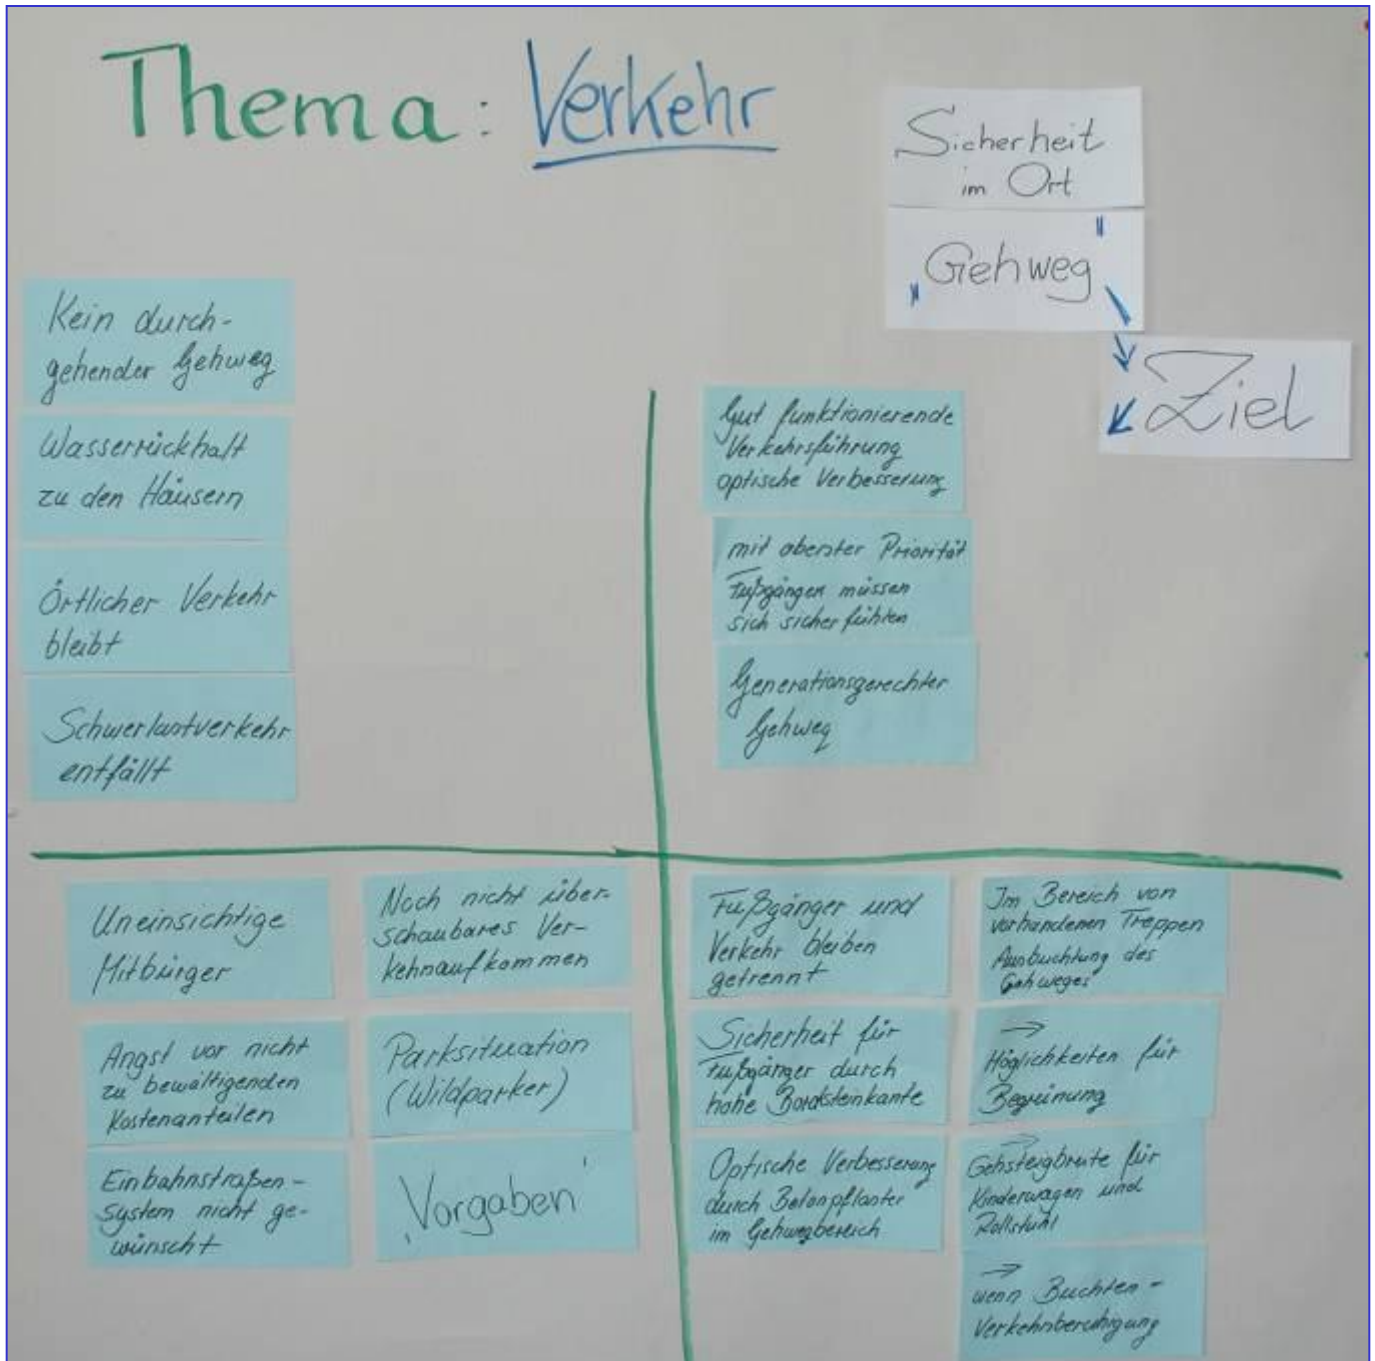 Thema: Verkehr
Sicherheit
im Ort
"Gehweg"
Ziel
Kein durch-
gehender Gehweg
Wasserrückhalt
zu den Häusern
Örtlicher Verkehr
bleibt
Schwerlastverkehr
entfällt
Gut funktionierende
Verkehrsführung
optische Verbesserung
mit oberster Priorität
Fußgänger müssen
sich sicher fühlen
Generationsgerechter
Gehweg
Uneinsichtige
Mitbürger
Angst vor nicht
zu bewältigenden
Kostenanteilen
Einbahnstraßen-
system nicht ge-
wünscht
Noch nicht über-
schaubares Ver-
kehraufkommen
Parksituation
(Wildparker)
"Vorgaben"
Fußgänger und
Verkehr bleiben
getrennt
Sicherheit für
Fußgänger durch
hohe Bordsteinkante
Optische Verbesserung
durch Betonpflaster
im Gehwegbereich
Im Bereich von
vorhandenen Treppen
Ausbuchtung des
Gehweges
→
Möglichkeiten für
Begrünung
→
Gehsteigbreite für
Kinderwagen und
Rollstuhl
→
wenn Buchten -
Verkehrsberuhigung